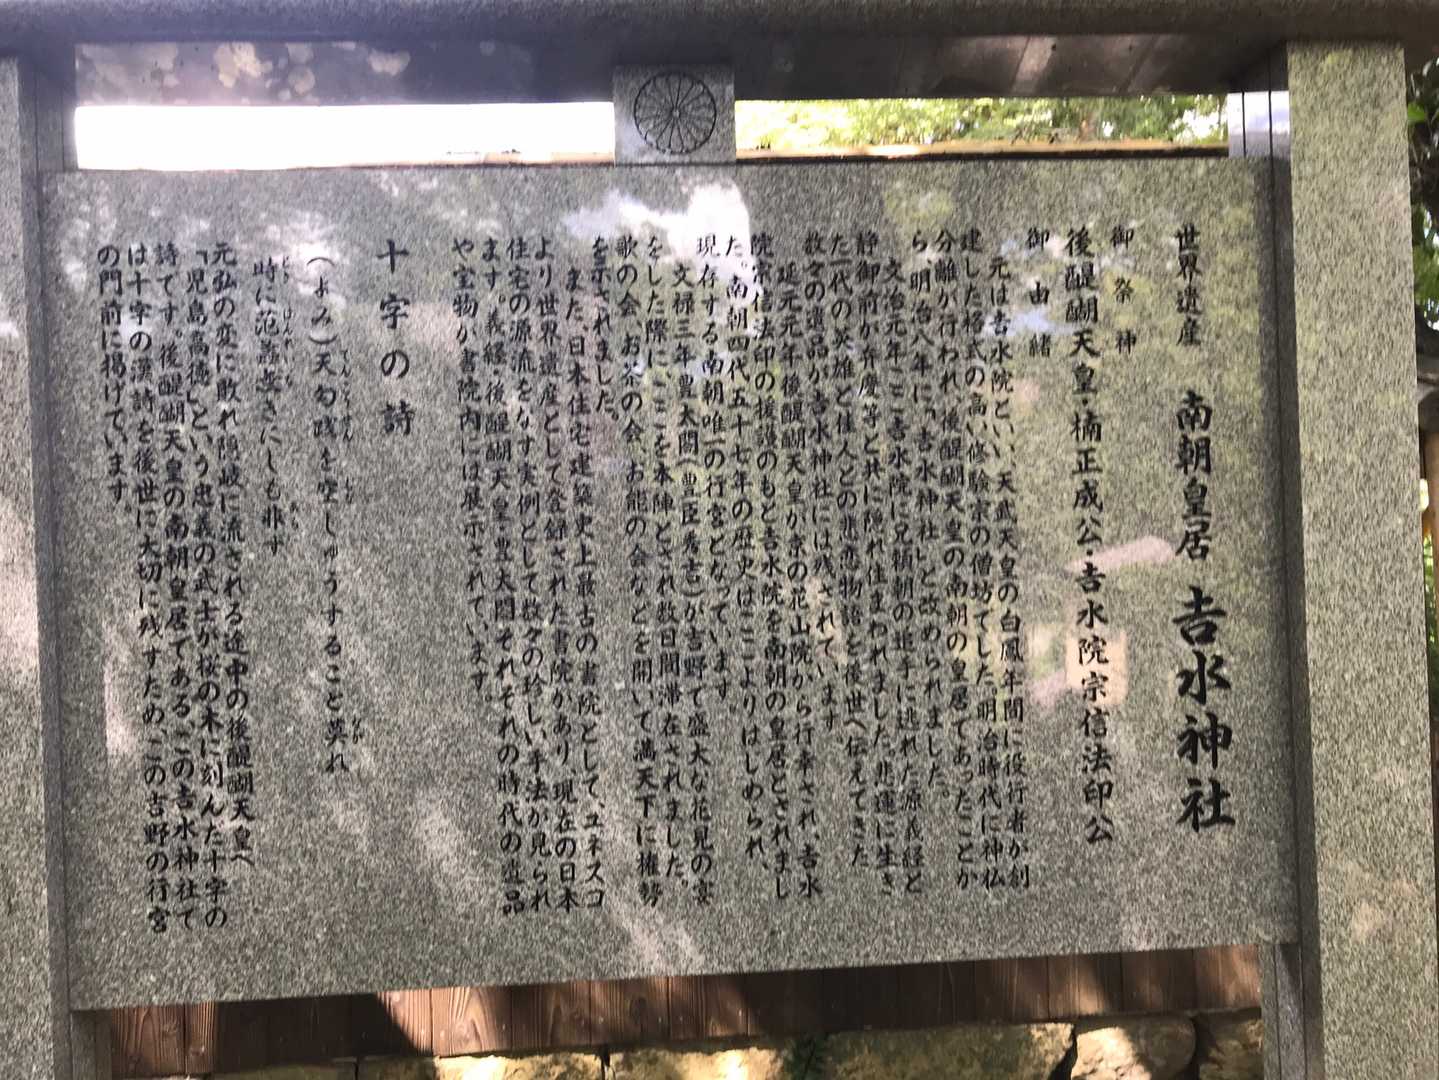 世界遺産 南朝皇居 吉水神社
御祭神
後醍醐天皇・楠正成公・吉水院宗信法印公
御由緒
元は吉水院といい、天武天皇の白鳳年間に役行者が創
建した格式の高い修験宗の僧坊でした。明治時代に神仏
分離が行われ、後醍醐天皇の南朝の皇居であったことか
ら、明治八年に「吉水神社」と改められました。
文治元年、ここ吉水院に兄頼朝の追手に逃れた源義経と
静御前が弁慶等と共に隠れ住まわれました。悲運に生き
た一代の英雄と佳人との悲恋物語を後世へ伝えてきた
数々の遺品が吉水神社には残されています。
延元元年、後醍醐天皇が京の花山院から行幸され、吉水
院宗信法印の援護のもと吉水院を南朝の皇居とされまし
た。南朝四代、五十七年の歴史はここよりはじめられ、
現存する南朝唯一の行宮となっています。
文禄三年豊太閤(豊臣秀吉)が吉野で盛大な花見の宴
をした際に、ここを本陣とされ数日間滞在されました。
歌の会、お茶の会、お能の会などを開いて満天下に権勢
を示されました。
また、日本住宅建築史上最古の書院として、ユネスコ
より世界遺産として登録された書院があり、現在の日本
住宅の源流をなす実例として数々の珍しい手法が見られ
ます。義経・後醍醐天皇・豊太閤それぞれの時代の遺品
や宝物が書院内には展示されています。
十字の詩
(よみ)天勾践を空しゅうすること莫れ
時に范蠡無きにしも非ず
元弘の変に敗れ隠岐に流される途中の後醍醐天皇へ
「児島高徳」という忠義の武士が桜の木に刻んだ十字の
詩です。後醍醐天皇の南朝皇居である、この吉水神社で
は十字の漢詩を後世に大切に残すため、この吉野の行宮
の門前に掲げています。